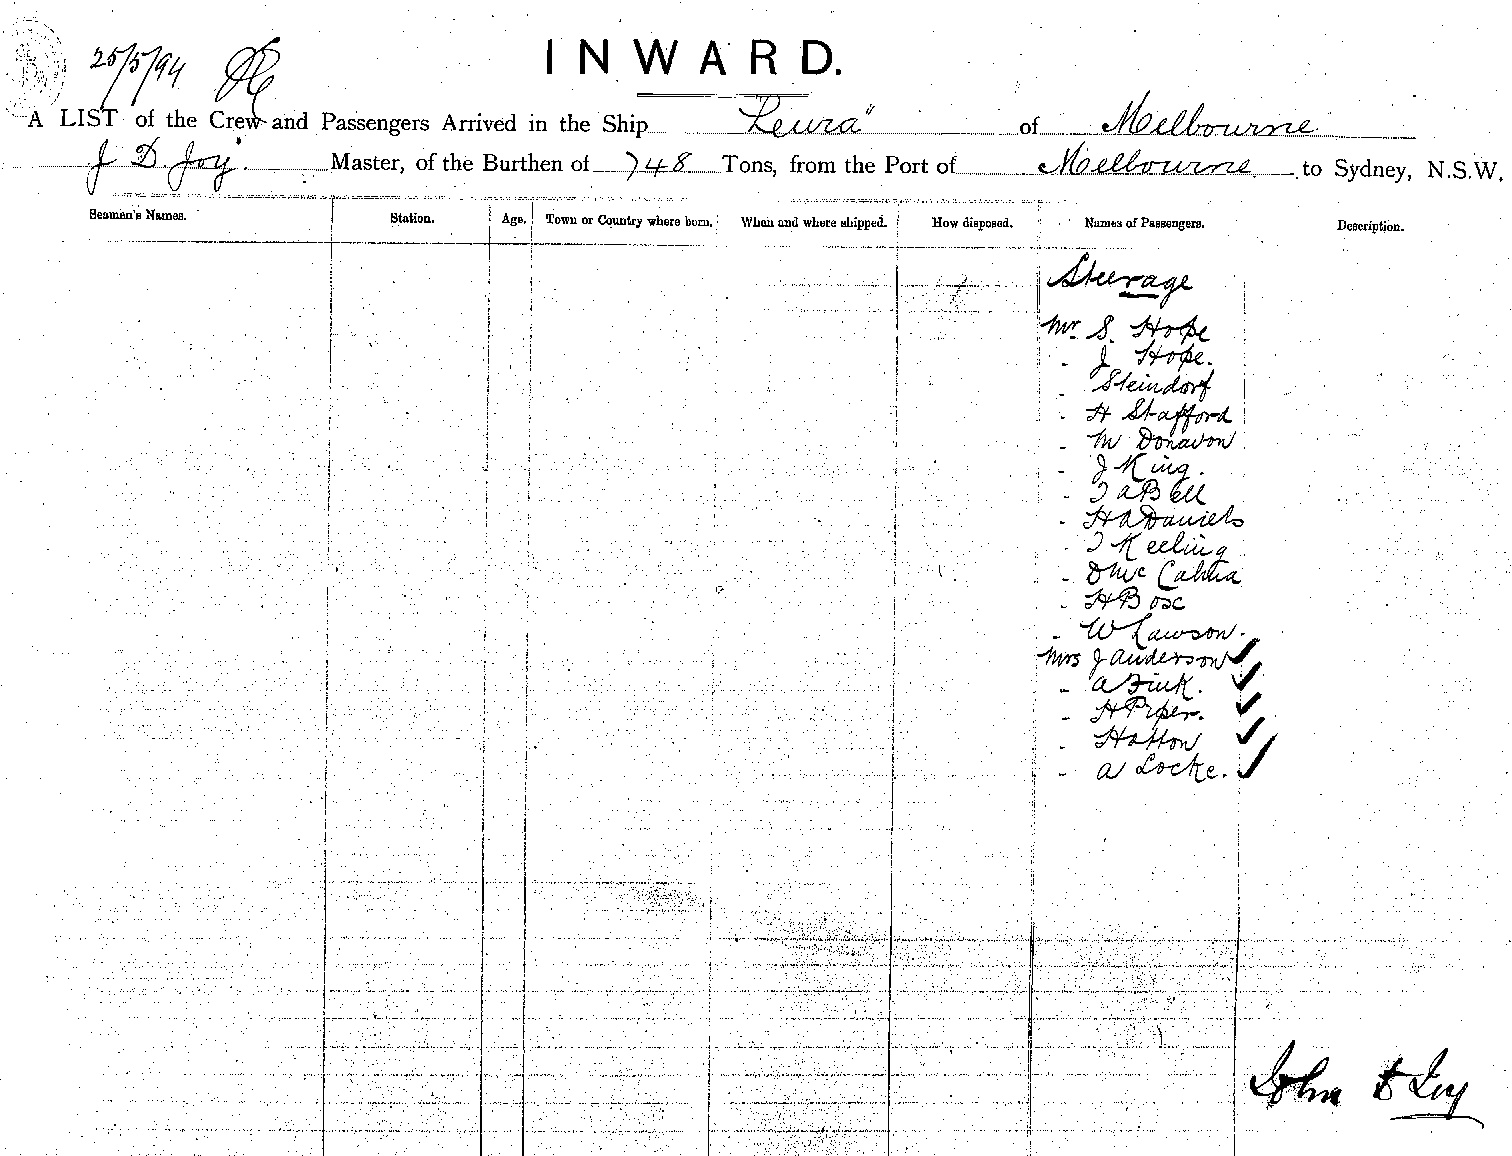 25/5/94
INWARD.
A LIST of the Crew and Passengers Arrived in the Ship "Leura" of Melbourne
J D. Joy. Master, of the Burthen of 748 Tons, from the Port of Melbourne to Sydney, N.S.W.
Seamen's Names. Station. Age. Town or Country where born. When and where shipped. How disposed. Names of Passengers. Description.
Steerage
Mr. S. Hope
- J Hope.
- Steindorf
- H Stafford
- M Donavon
- J King.
- T A Bell
- H A Daniels
- T Keeling
- D Mc
- H Bose
- W Lawson.
Mrs J Anderson ✓
- A Fink. ✓
- H Piper. ✓
- Hatton ✓
- A Locke. ✓
John D Joy